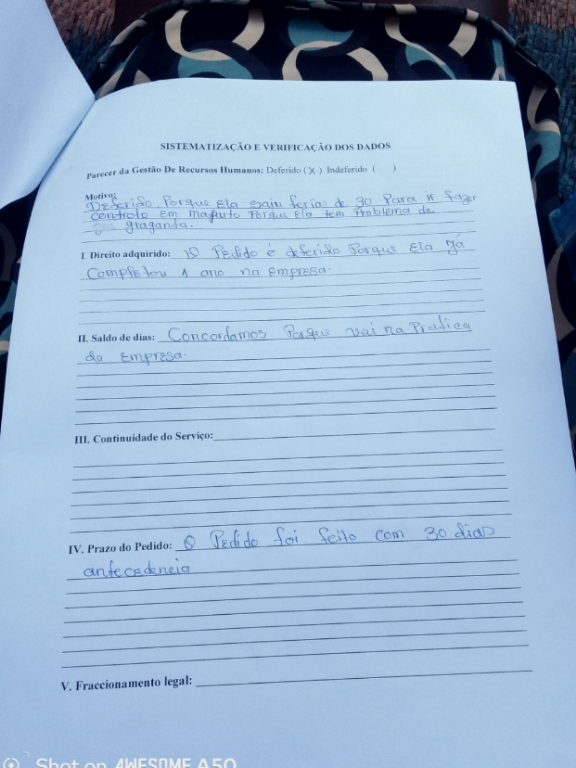 SISTEMATIZAÇÃO E VERIFICAÇÃO DOS DADOS
Parecer da Gestão De Recursos Humanos: Deferido (X) Indeferido ( )
Motivo:
Deferido. Porque Ela saiu feria de 30 Para ir fazer
controlo Em maputo Porque Ela tem Problema de
graganta.
I. Direito adquirido: O Pedido é deferido Porque Ela já
Completou 1 ano na Empresa.
II. Saldo de dias: Concordamos Porque vai na Pratica
da Empresa.
III. Continuidade do Serviço:
IV. Prazo do Pedido: O Pedido foi feito com 30 dias
antecedencia
V. Fraccionamento legal:
Shot on AWESOME A50